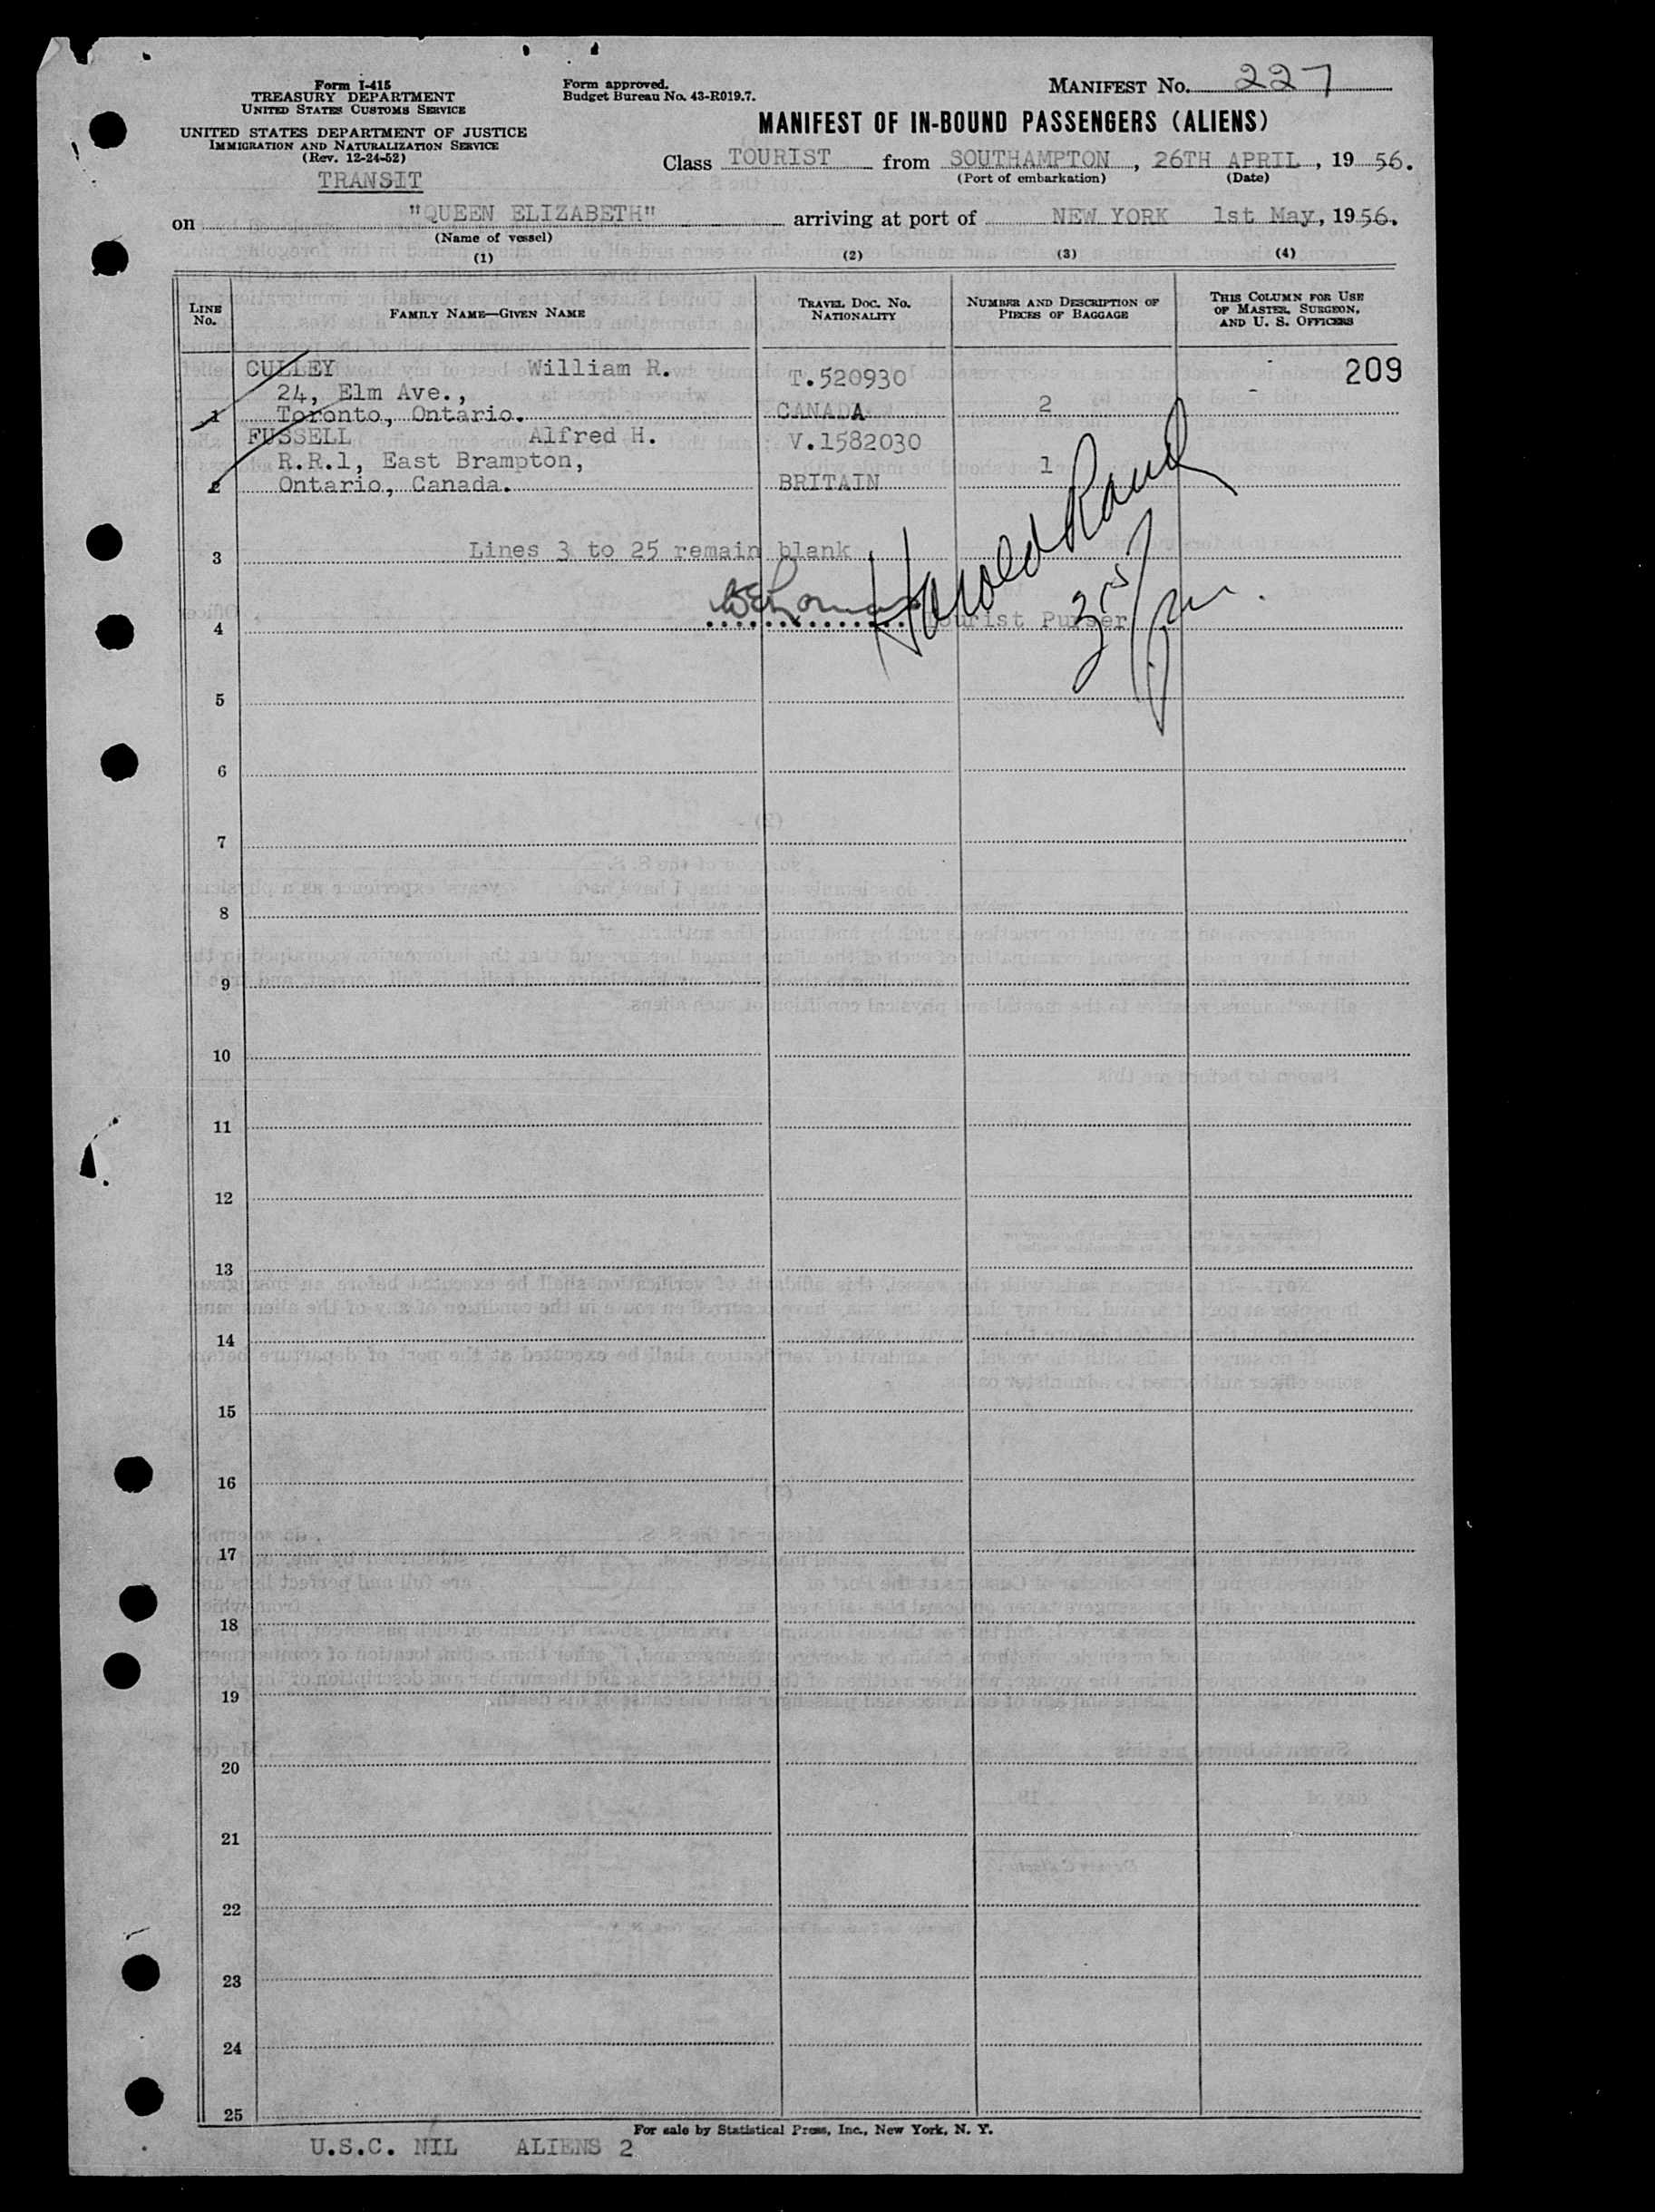 Form I-415
TREASURY DEPARTMENT
UNITED STATES CUSTOMS SERVICE
UNITED STATES DEPARTMENT OF JUSTICE
IMMIGRATION AND NATURALIZATION SERVICE
(Rev. 12-24-52)
TRANSIT
Form approved.
Budget Bureau No. 43-R019.7.
MANIFEST No. 227
MANIFEST OF IN-BOUND PASSENGERS (ALIENS)
Class TOURIST from SOUTHAMPTON, 26TH APRIL, 1956.
(Port of embarkation) (Date)
on "QUEEN ELIZABETH" arriving at port of NEW YORK 1st May, 1956.
(Name of vessel)
(1) (2) (3) (4)
LINE No. FAMILY NAME—GIVEN NAME TRAVEL DOC. No. NATIONALITY NUMBER AND DESCRIPTION OF PIECES OF BAGGAGE THIS COLUMN FOR USE OF MASTER, SURGEON, AND U. S. OFFICERS
CULLEY William R. T.520930 209
24, Elm Ave.,
1 Toronto, Ontario. CANADA 2
FUSSELL Alfred H. V.1582030
R.R.1, East Brampton, 1
2 Ontario, Canada. BRITAIN
3 Lines 3 to 25 remain blank
Harold
4 Tourist Purser
5
6
7
8
9
10
11
12
13
14
15
16
17
18
19
20
21
22
23
24
25
For sale by Statistical Press, Inc., New York, N. Y.
U.S.C. NIL ALIENS 2